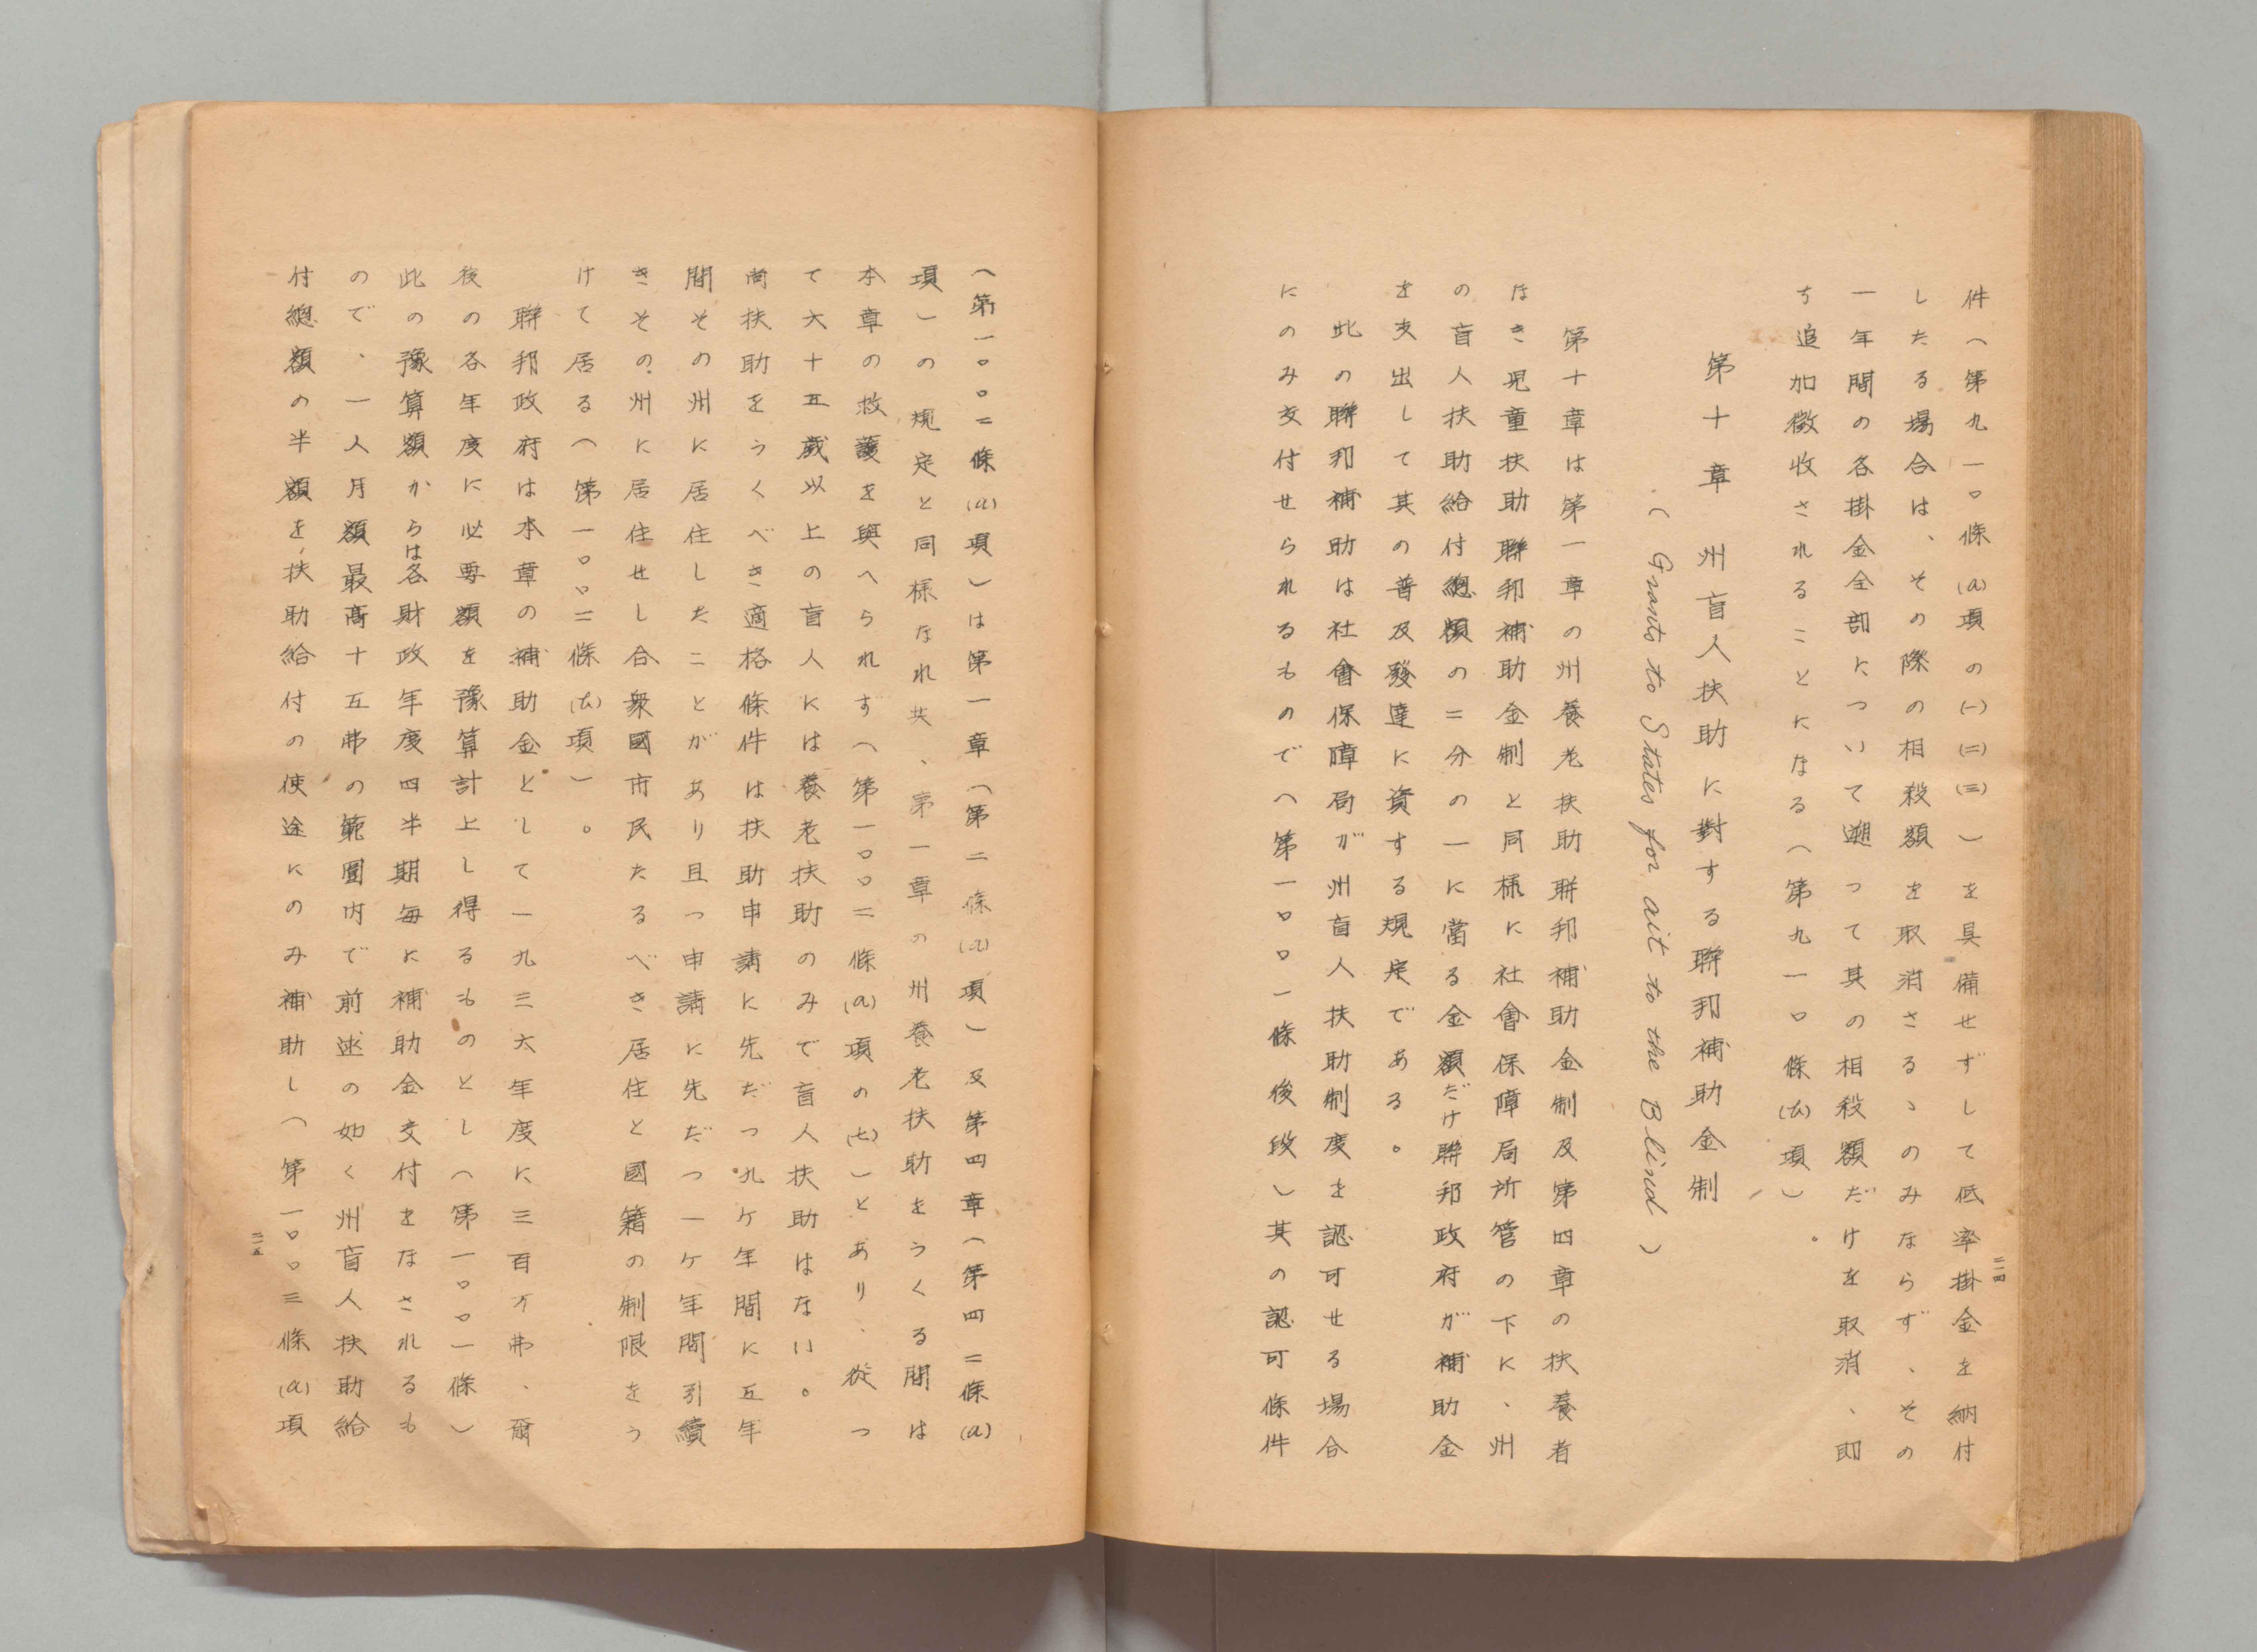 件(第九一〇條(a)項の(一)(二)(三))を具備せずして低率掛金を納付
したる場合は、その際の相殺額を取消さるゝのみならず、その
一年間の各掛金全部について遡つて其の相殺額だけを取消、即
ち追加徴收されることになる(第九一〇條(b)項)。
第十章 州盲人扶助に對する聯邦補助金制
(Grants to States for ait to the Blind)
第十章は第一章の州養老扶助聯邦補助金制及第四章の扶養者
なき児童扶助聯邦補助金制と同様に社會保障局所管の下に、州
の盲人扶助給付總額の二分の一に當る金額だけ聯邦政府が補助金
を支出して其の普及發達に資する規定である。
此の聯邦補助は社會保障局が州盲人扶助制度を認可せる場合
にのみ交付せられるもので(第一〇〇一條後段)其の認可條件
二一四
(第一〇〇二條(a)項)は第一章(第二條(a)項)及第四章(第四〇二條(a)
項)の規定と同様なれ共、第一章の州養老扶助をうくる間は
本章の救護を與へられず(第一〇〇二條(a)項の(七))とあり、從つ
て六十五歳以上の盲人には養老扶助のみで盲人扶助はない。
尚扶助をうくべき適格條件は扶助申請に先だつ九ケ年間に五年
間その州に居住したことがあり且つ申請に先だつ一ケ年間引續
きその州に居住せし合衆國市民たるべき居住と國籍の制限をう
けて居る(第一〇〇二條(b)項)。
聯邦政府は本章の補助金として一九三六年度に三百万弗、爾
後の各年度に必要額を豫算計上し得るものとし(第一〇〇一條)
此の豫算額からは各財政年度四半期毎に補助金交付をなされるも
ので、一人月額最高十五弗の範圍内で前述の如く州盲人扶助給
付總額の半額を、扶助給付の使途にのみ補助し(第一〇〇三條(a)項
二一五